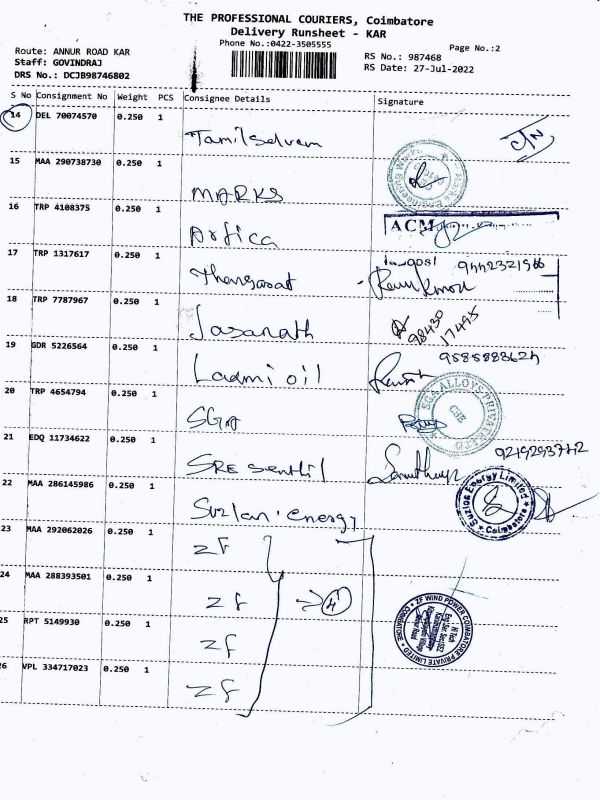 THE PROFESSIONAL COURIERS, Coimbatore
Delivery Runsheet - KAR
Phone No.:0422-3505555
Page No.:2
Route: ANNUR ROAD KAR
Staff: GOVINDRAJ
DRS No.: DCJB98746802
RS No.: 987468
RS Date: 27-Jul-2022
S No Consignment No Weight PCS Consignee Details Signature
14 DEL 70074570 0.250 1 Tamilselvam
15 MAA 290738730 0.250 1 MARKS
16 TRP 4108375 0.250 1 Artica ACM
17 TRP 1317617 0.250 1 9442321566
18 TRP 7787967 0.250 1 98430 17495
19 GDR 5226564 0.250 1 Laxmi oil
20 TRP 4654794 0.250 1 SGA SGA ALLOYS PRIVATE CBE
21 EDQ 11734622 0.250 1 SRE Senthil
22 MAA 286145986 0.250 1 Suzlan energy Suzlon Energy Limited Coimbatore
23 MAA 292062026 0.250 1 ZF
24 MAA 288393501 0.250 1 ZF 4
25 RPT 5149930 0.250 1 ZF ZF WIND POWER COIMBATORE PRIVATE LIMITED COIMBATORE
26 VPL 334717023 0.250 1 ZF